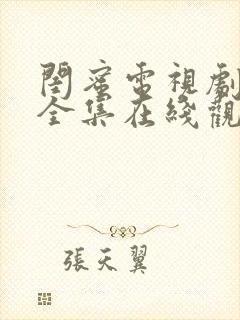 閨蜜電視劇
全集在綫觀
張天翼